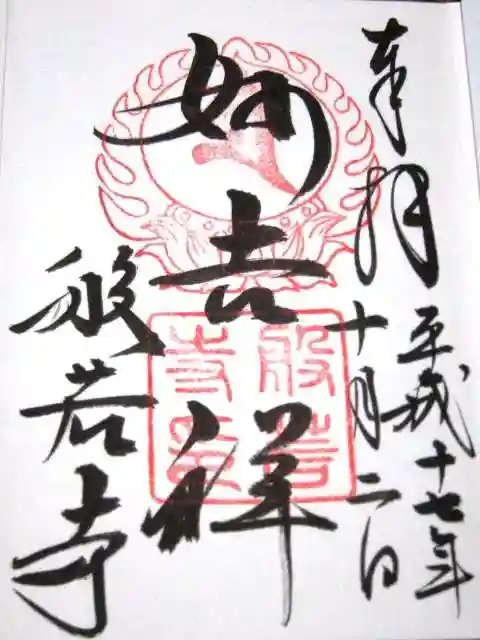 奉拝
平成十七年
十月二日
妙吉祥
般若寺
般若寺印